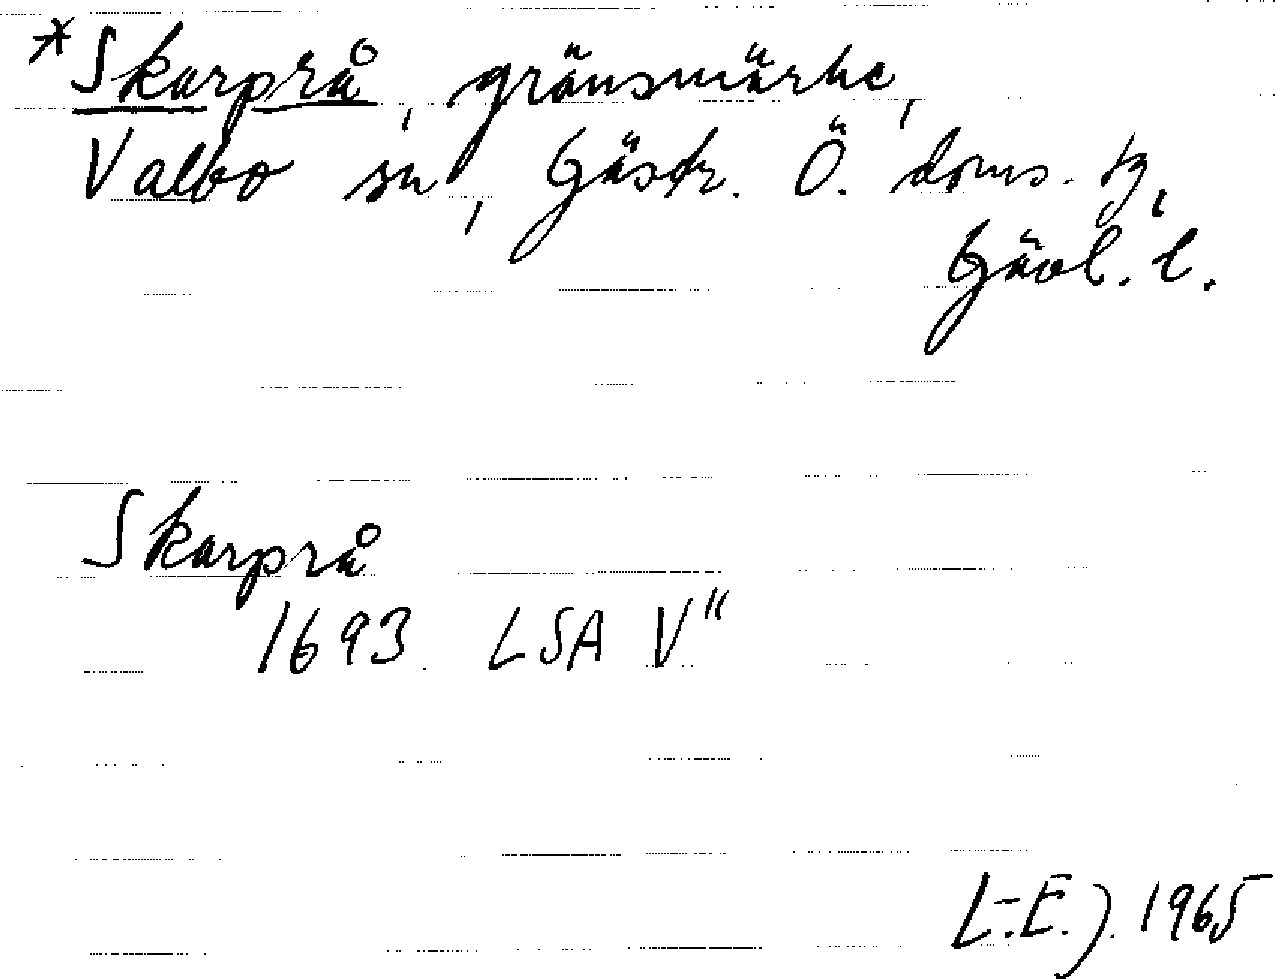 *Skarprå, gränsmärke,
Valbo sn, Gästr. Ö. doms. tg,
Gävl. l.
Skarprå
1693 LSA V"
L-E.J. 1965